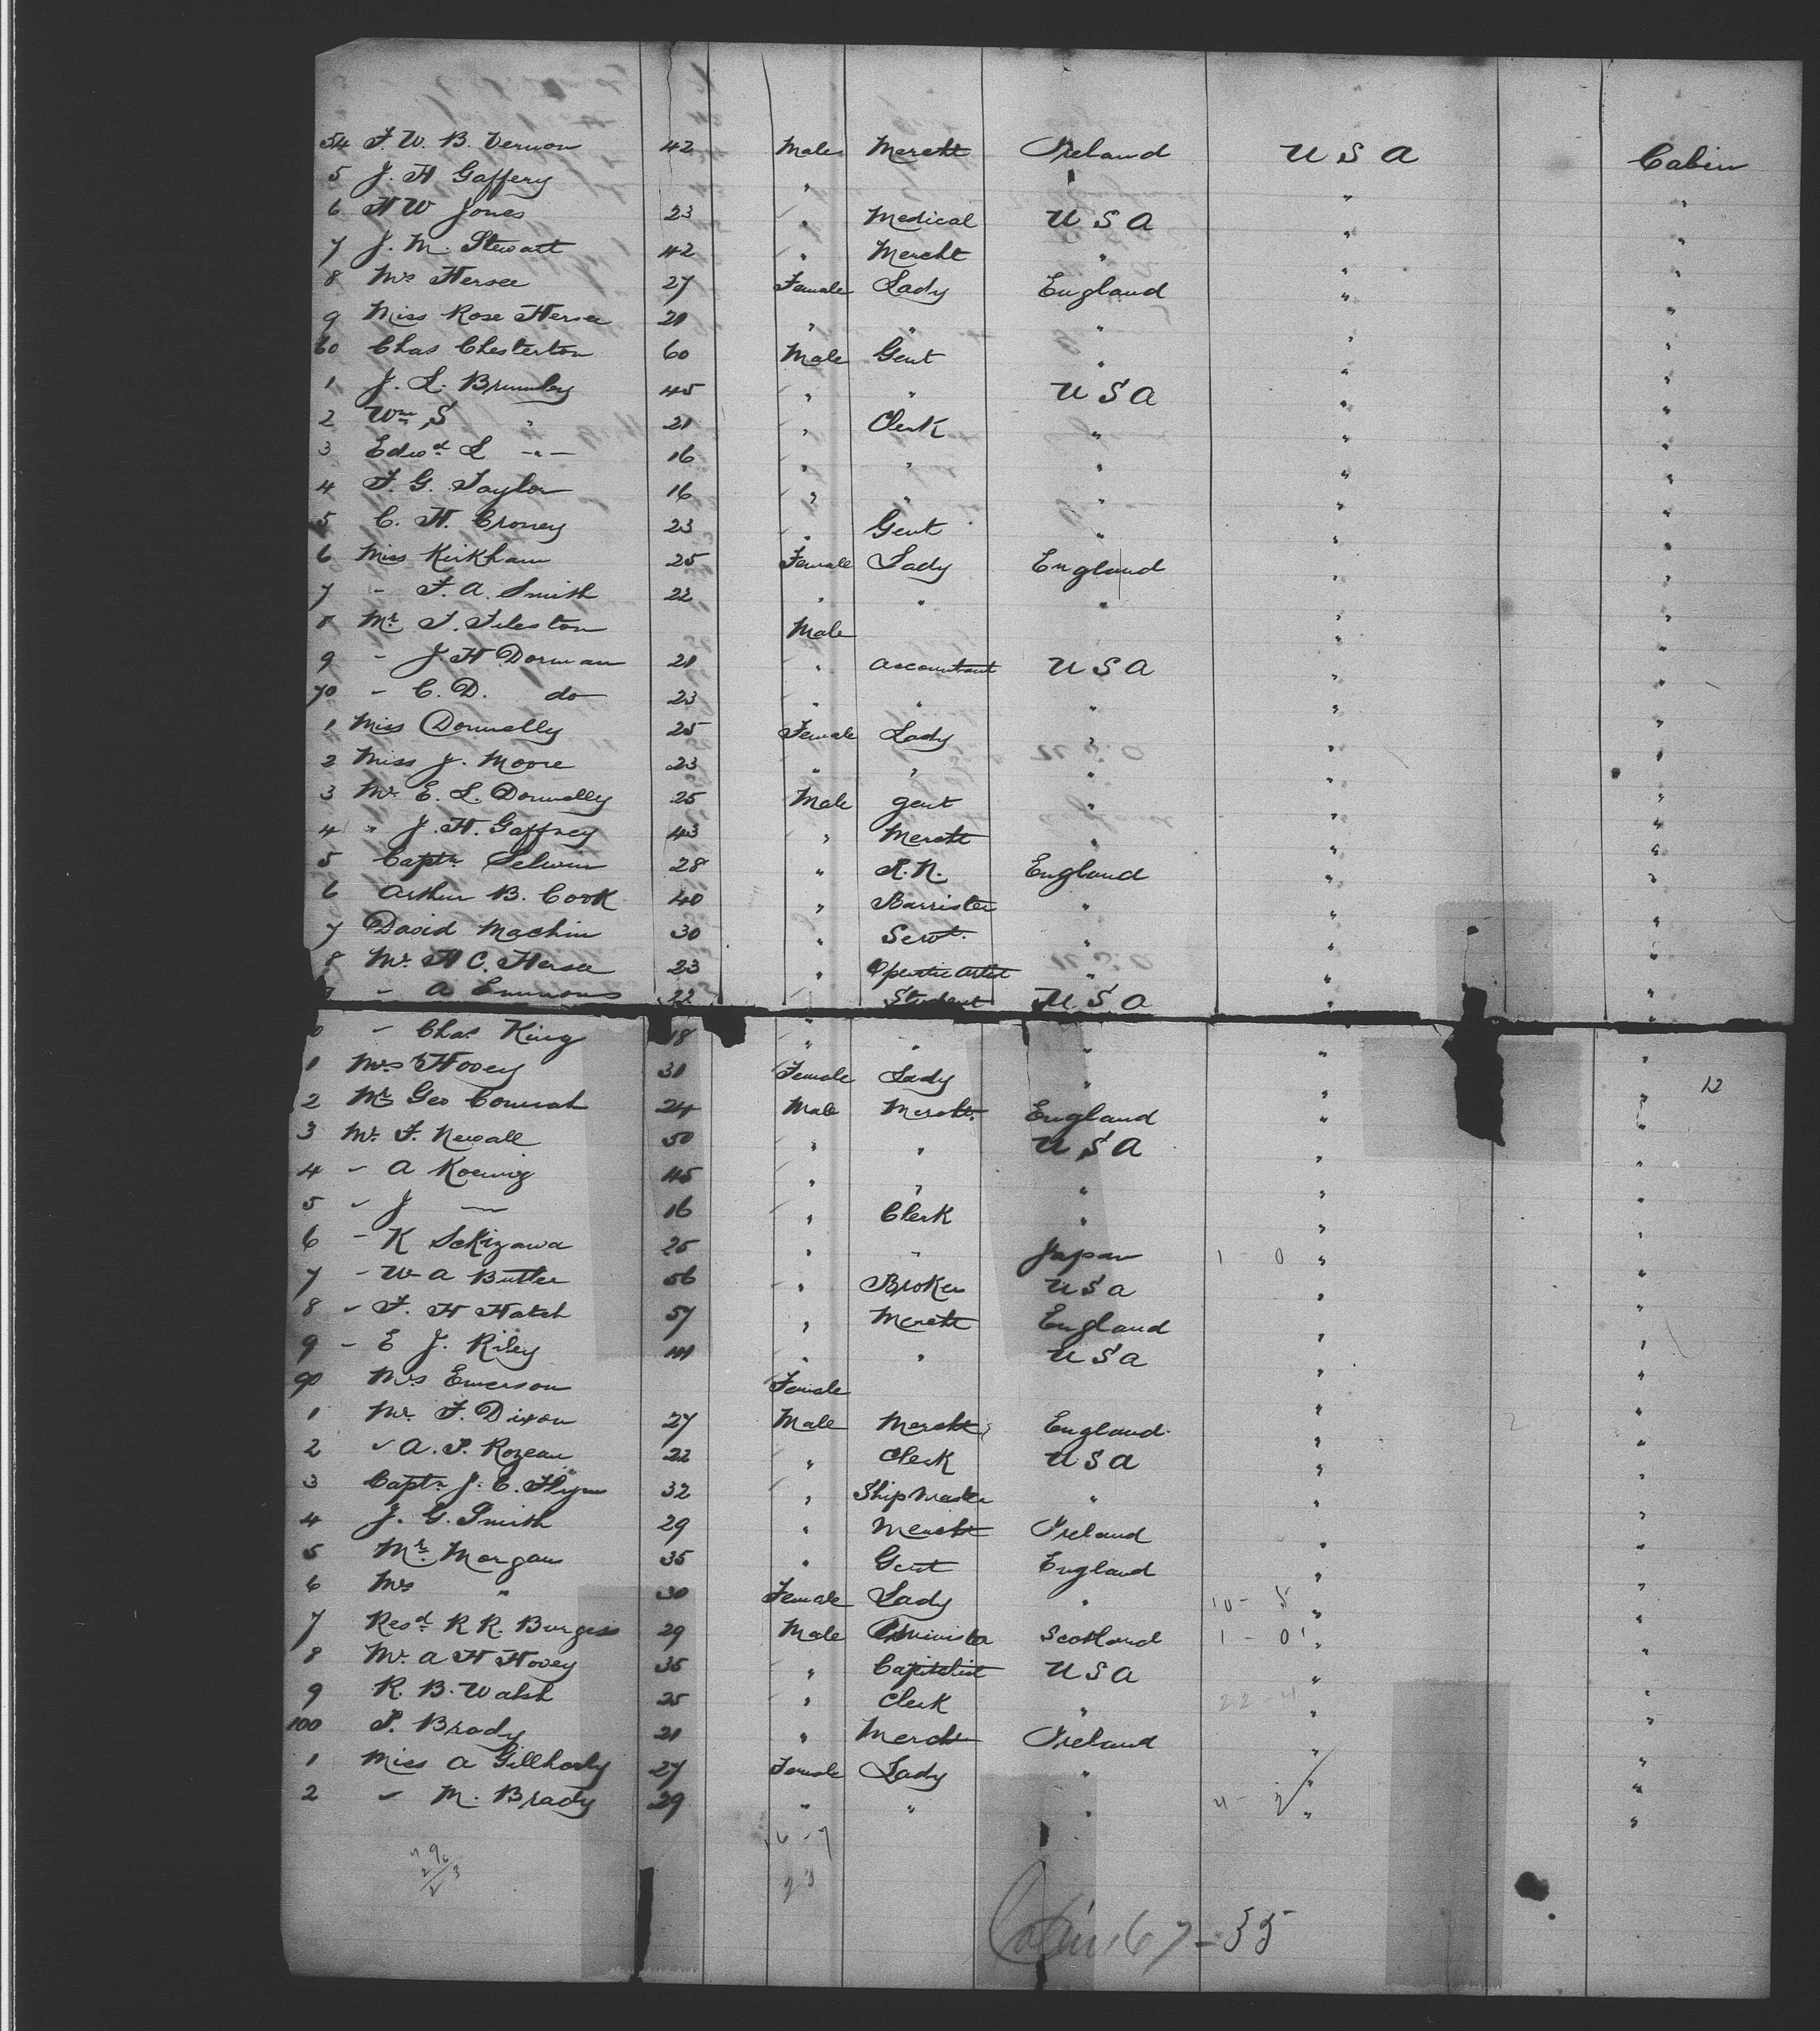 54 F. W. B. Vernon 42 Male Mercht Ireland U S A Cabin
5 J. H Gaffery " " " "
6 H W Jones 23 " Medical U S A " "
7 J. M. Stewart 42 " Mercht " " "
8 Mrs Hersee 27 Female Lady England " "
9 Miss Rose Hersee 21 " " " " "
60 Chas Chesterton 60 Male Gent " " "
1 J. L. Brumley 45 " " U S A " "
2 Wm S " 21 " Clerk " " "
3 Edwd L -"- 16 " " " " "
4 F. G. Taylor 16 " " " " "
5 C. H. Croney 23 " Gent " " "
6 Miss Kirkham 25 Female Lady England " "
7 - F. A. Smith 22 " " " " "
8 Mr T. Tileston Male " "
9 - J H Dorman 21 " accountant U S A " "
70 - C. D. do 23 " " " " "
1 Miss Donnelly 25 Female Lady " " "
2 Miss J. Moore 23 " " " " "
3 Mr E. L. Donnelly 25 Male gent " " "
4 " J. H. Gaffney 43 " Mercht " " "
5 Captn Selwin 28 " R. N. England " "
6 Arthur B. Cook 40 " Barrister " " "
7 David Machin 30 " Servt. " " "
8 Mr. H C. Hersee 23 " Operatic artist " " "
9 - A Emmons 22 Student U S A " "
0 - Chas King 18 " " " " "
1 Mrs Hovey 31 Female Lady " " "
2 Mr Geo Connah 24 Male Mercht. England " " 12
3 Mr. F. Newall 50 " " U S A " "
4 - A Koenig 45 " " " " "
5 - J — 16 " Clerk " " "
6 - K Sekizawa 25 " " Japan 1 - 0 " "
7 - W A Butler 56 " Broker U S A " "
8 - F. H Hatch 57 " Mercht England " "
9 - E J. Riley 41 " " U S A " "
90 Mrs Emerson Female " "
1 Mr. F. Dixon 27 Male Mercht England " "
2 - A. P. Rozeau 22 " Clerk U S A " "
3 Captn J. C. Flynn 32 " Ship Master " " "
4 J. G. Smith 29 " Mercht Ireland " "
5 Mr. Morgan 35 " Gent England " "
6 Mrs " 30 Female Lady " 10 - 5 " "
7 Revd R R. Burgess 29 Male Minister Scotland 1 - 0 " "
8 Mr. A H Hovey 35 " Capitalist U S A " "
9 R. B. Walsh 25 " Clerk " 22 - 4 " "
100 P. Brady 21 " Mercht Ireland " "
1 Miss A Gillhooly 27 Female Lady " " "
2 - M. Brady 29 " " " 4 - 2 " "
23
Cabin 67 - 35